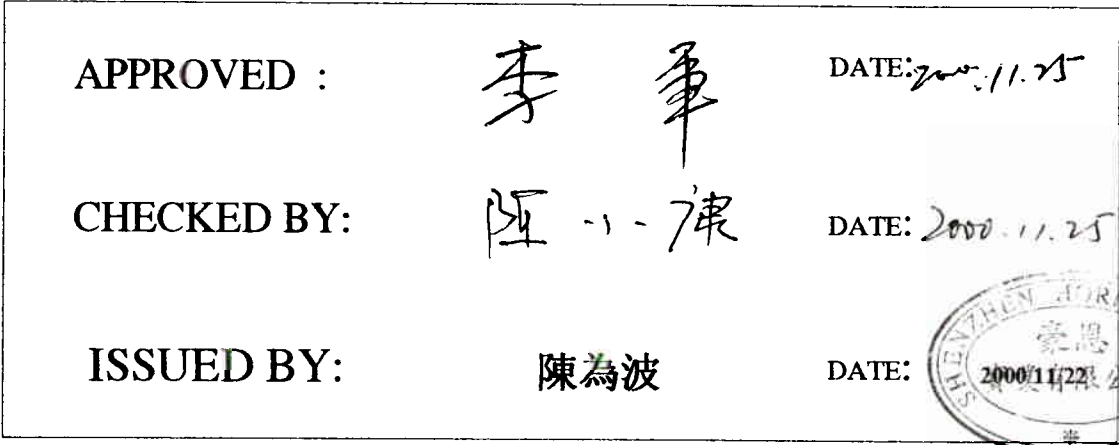 APPROVED : 李 軍 DATE: 2000.11.25
CHECKED BY: 陈小 DATE: 2000.11.25
ISSUED BY: 陳為波 DATE: 2000/11/22
SHENZHEN HOR
豪恩
有限公